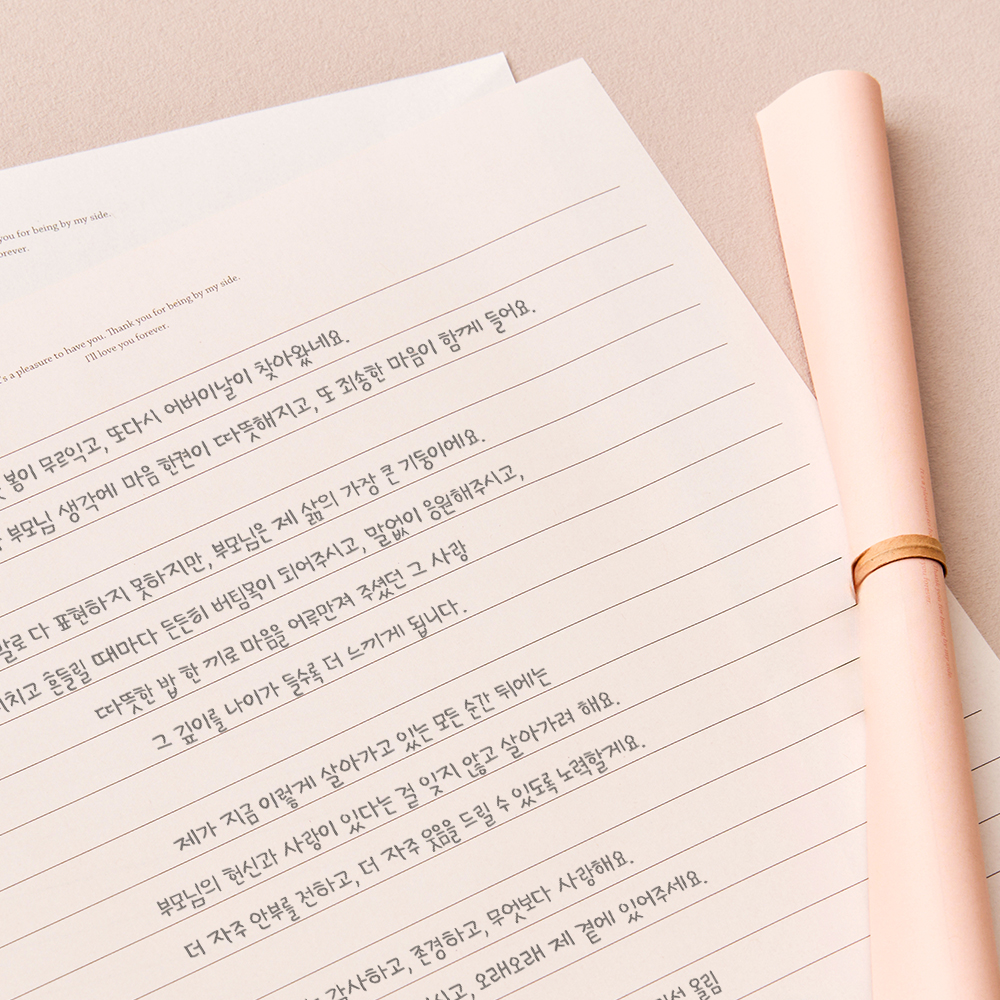 you for being by my side.
orever.
's a pleasure to have you. Thank you for being by my side.
I'll love you forever.
봄이 무르익고, 또다시 어버이날이 찾아왔네요.
부모님 생각에 마음 한켠이 따뜻해지고, 또 죄송한 마음이 함께 들어요.
말로 다 표현하지 못하지만, 부모님은 제 삶의 가장 큰 기둥이에요.
치고 흔들릴 때마다 든든히 버팀목이 되어주시고, 말없이 응원해주시고,
따뜻한 밥 한 끼로 마음을 어루만져 주셨던 그 사랑
그 깊이를 나이가 들수록 더 느끼게 됩니다.
제가 지금 이렇게 살아가고 있는 모든 순간 뒤에는
부모님의 헌신과 사랑이 있다는 걸 잊지 않고 살아가려 해요.
더 자주 안부를 전하고, 더 자주 웃음을 드릴 수 있도록 노력할게요.
감사하고, 존경하고, 무엇보다 사랑해요.
시고, 오래오래 제 곁에 있어주세요.
올림